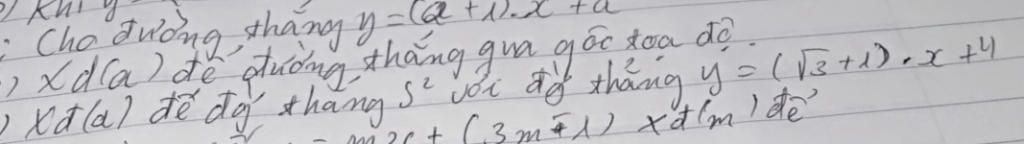 ) Khi y
: Cho đường thẳng y = (a + 1). x + a
) Xđ(a) để đường thẳng qua gốc tọa độ.
) Xđ(a) để đg thẳng s² với đg thẳng y = (√3 + 1). x + 4
= m x + (3m - 1) xđ(m) để